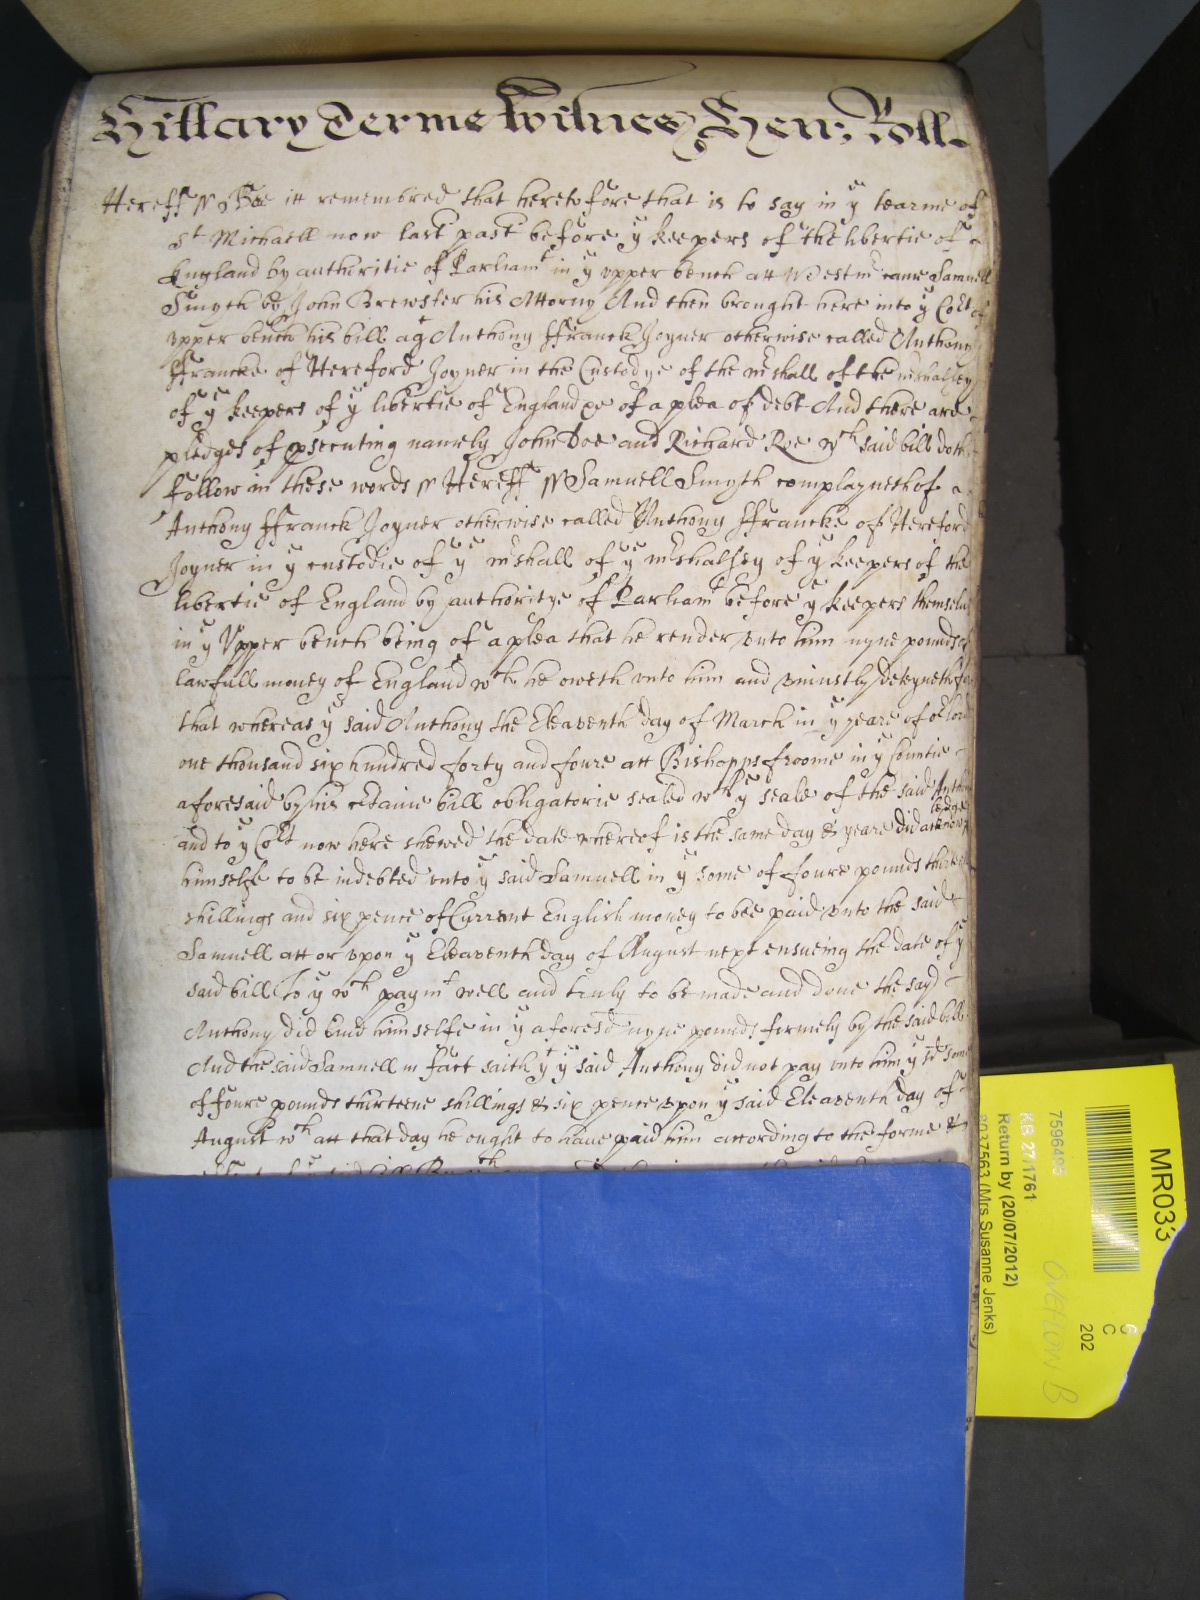 Hillary Terme Witnes Hen: Roll.
Hereff ss Bee itt remembred that heretofore that is to say in ye tearme of
St Michaell now last past before ye keepers of the libertie of
England by authoritie of Parliamt in ye upper bench att Westmr came Samuell
Smyth by John Brewster his Attorny And then brought here into ye Cort of
upper bench his bill agt Anthony Ffranck Joyner otherwise called Anthony
Ffrancke of Hereford Joyner in the Custodye of the mrshall of the mrshalsey
of ye keepers of ye libertie of England &c of a plea of debt And there are
pledges of psecuting namely John Doe and Richard Roe wch said bill doth
follow in these words ss Hereff ss Samuell Smyth complayneth of
Anthony Ffranck Joyner otherwise called Anthony Ffrancke of Hereford
Joyner in ye custodie of ye mrshall of ye mrshalsey of ye keepers of the
libertie of England by authoritye of Parliamt before ye keepers themselves
in ye Upper bench being of a plea that he render unto him nyne pounds of
lawfull money of England wch he oweth unto him and uniustly deteyneth for
that whereas ye said Anthony the Eleaventh day of March in ye yeare of or lord
one thousand six hundred forty and foure att Bishopps froome in ye countie
aforesaid by his certaine bill obligatorie sealed wth ye seale of the said Anthony
and to ye Cort now here shewed the date whereof is the same day & yeare did acknowledge
himselfe to be indebted unto ye said Samuell in ye some of foure pounds thirteene
shillings and six pence of Current English money to bee paid unto the said
Samuell att or upon ye Eleaventh day of August next ensueing the date of ye
said bill To ye wch paymt well and truly to be made and done the sayd
Anthony did bind himselfe in ye aforesd nyne pounds firmely by the said bill
And the said Samuell in fact saith yt ye said Anthony did not pay unto him ye sd some
of foure pounds thirteene shillings & six pence upon ye said Eleaventh day of
August wch att that day he ought to have paid him according to the forme &
MR033
7596495
KB 27/1761
Return by (20/07/2012)
8037563 (Mrs Susanne Jenks)
Overflow B
C
202